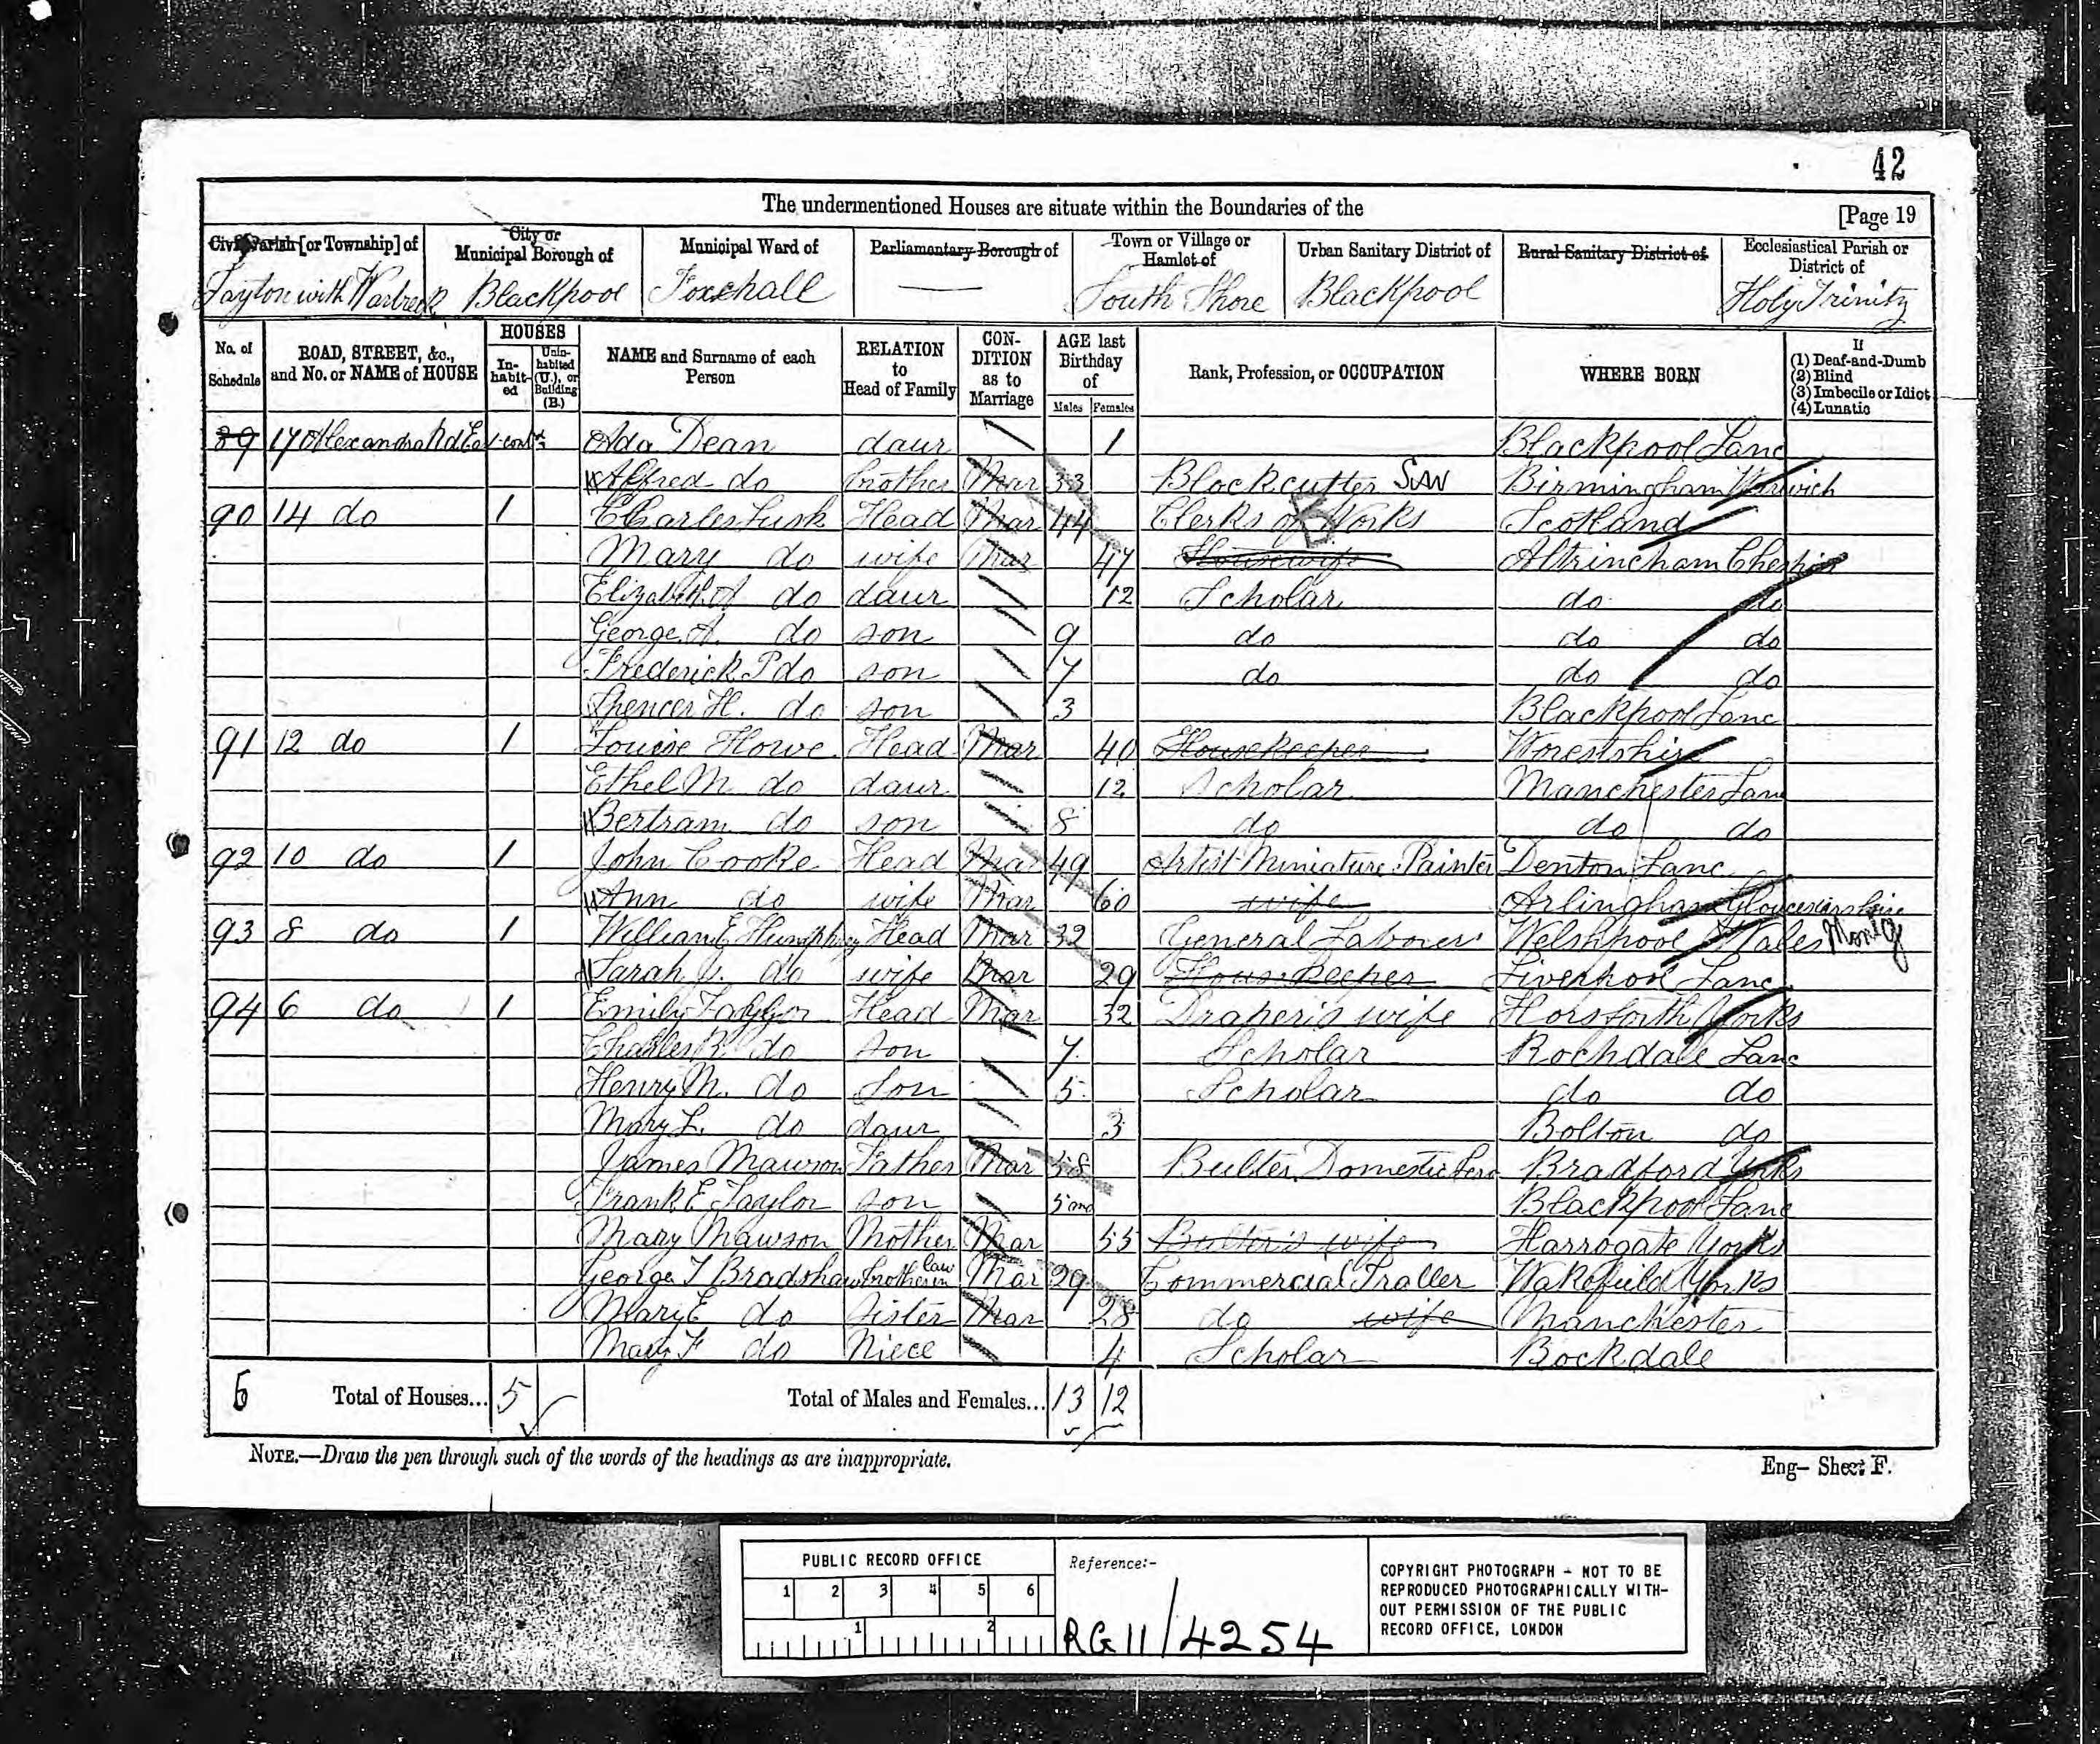 42
The undermentioned Houses are situate within the Boundaries of the [Page 19
Civil Parish [or Township] of City or Municipal Borough of Municipal Ward of Parliamentary Borough of Town or Village or Hamlet of Urban Sanitary District of Rural Sanitary District of Ecclesiastical Parish or District of
Layton with Warbreck Blackpool Foxhall South Shore Blackpool Holy Trinity
No. of Schedule ROAD, STREET, &c., and No. or NAME of HOUSE HOUSES Inhabited Uninhabited (U.), or Building (B.) NAME and Surname of each Person RELATION to Head of Family CONDITION as to Marriage AGE last Birthday of Males Females Rank, Profession, or OCCUPATION WHERE BORN If (1) Deaf-and-Dumb (2) Blind (3) Imbecile or Idiot (4) Lunatic
89 17 Alexandra Rd Ada Dean daur 1 Blackpool Lanc
Alfred do brother Mar 33 Block cutter Birmingham Warwich
90 14 do 1 Charles Lusk Head Mar 44 Clerks of Works Scotland
Mary do wife Mar 47 Housewife Altrincham Cheshire
Elizabeth A do daur 12 Scholar do do
George A. do son 9 do do do
Frederick P do son 7 do do do
Spencer H. do son 3 Blackpool Lanc
91 12 do 1 Louise Howe Head Mar 40 Housekeeper Worestshire
Ethel M do daur 12 Scholar Manchester Lanc
Bertram do son 8 do do do
92 10 do 1 John Cooke Head Mar 49 Artist Miniature Painter Denton Lanc
Ann do wife Mar 60 wife Arlingham Gloucestershire
93 8 do 1 William E Humphrey Head Mar 32 General Labourer Welshpool Wales Montg
Sarah J. do wife Mar 29 Housekeeper Liverpool Lanc
94 6 do 1 Emily Taylor Head Mar 32 Draper's wife Horsforth Yorks
Charles R. do son 7 Scholar Rochdale Lanc
Henry M. do Son 5 Scholar do do
Mary L. do daur 3 Bolton do
James Mawson Father Mar 58 Bulter Domestic Serv Bradford Yorks
Frank E Taylor son 5 mo Blackpool Lanc
Mary Mawson Mother Mar 55 Bulter's wife Harrogate Yorks
George T Bradshaw brother in law Mar 29 Commercial Traller Wakefield Yorks
Mary E do Sister Mar 28 do wife Manchester
Mary F do Niece 4 Scholar Bockdale
6 Total of Houses... 5 Total of Males and Females... 13 12
NOTE.—Draw the pen through such of the words of the headings as are inappropriate.
Eng- Sheet F.
PUBLIC RECORD OFFICE
1 2 3 4 5 6
1 2
Reference:-
RG 11/4254
COPYRIGHT PHOTOGRAPH - NOT TO BE
REPRODUCED PHOTOGRAPHICALLY WITH-
OUT PERMISSION OF THE PUBLIC
RECORD OFFICE, LONDON